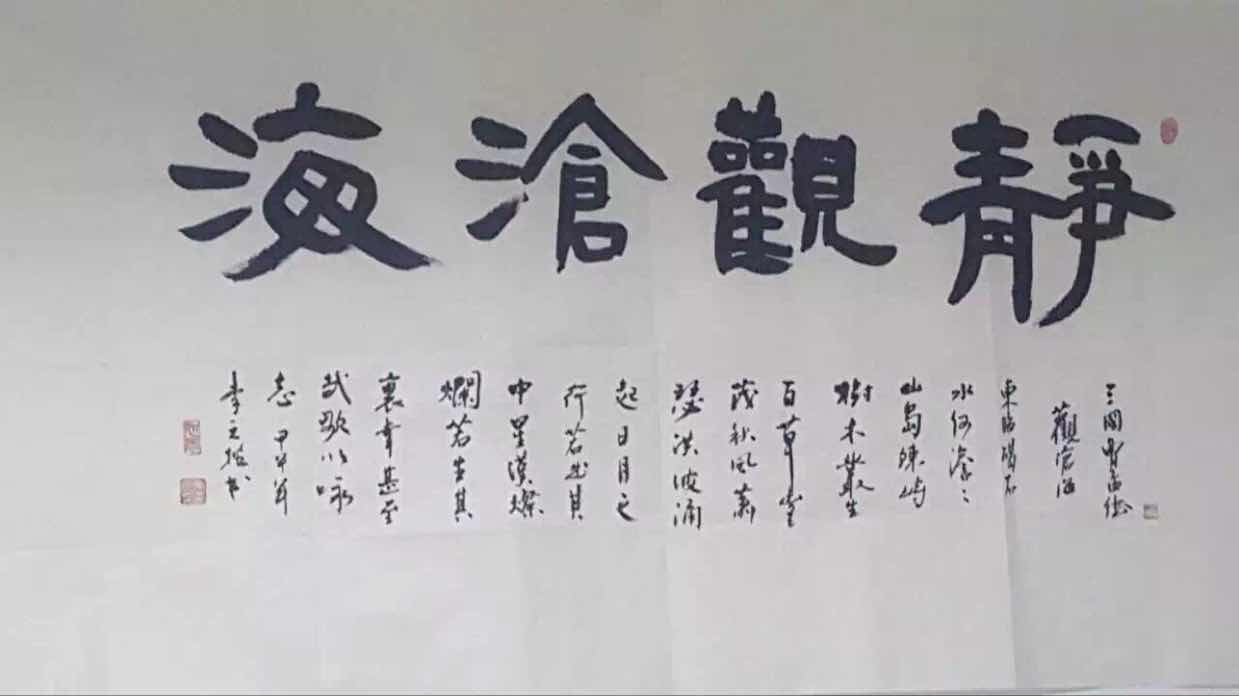 靜觀滄海
三國曹孟德
觀滄海
東臨碣石
水何澹〻
山島竦峙
樹木叢生
百草豐
茂秋風蕭
瑟洪波涌
起日月之
行若出其
中星漢燦
爛若出其
裏幸甚至
哉歌以咏
志 甲午年
李 书